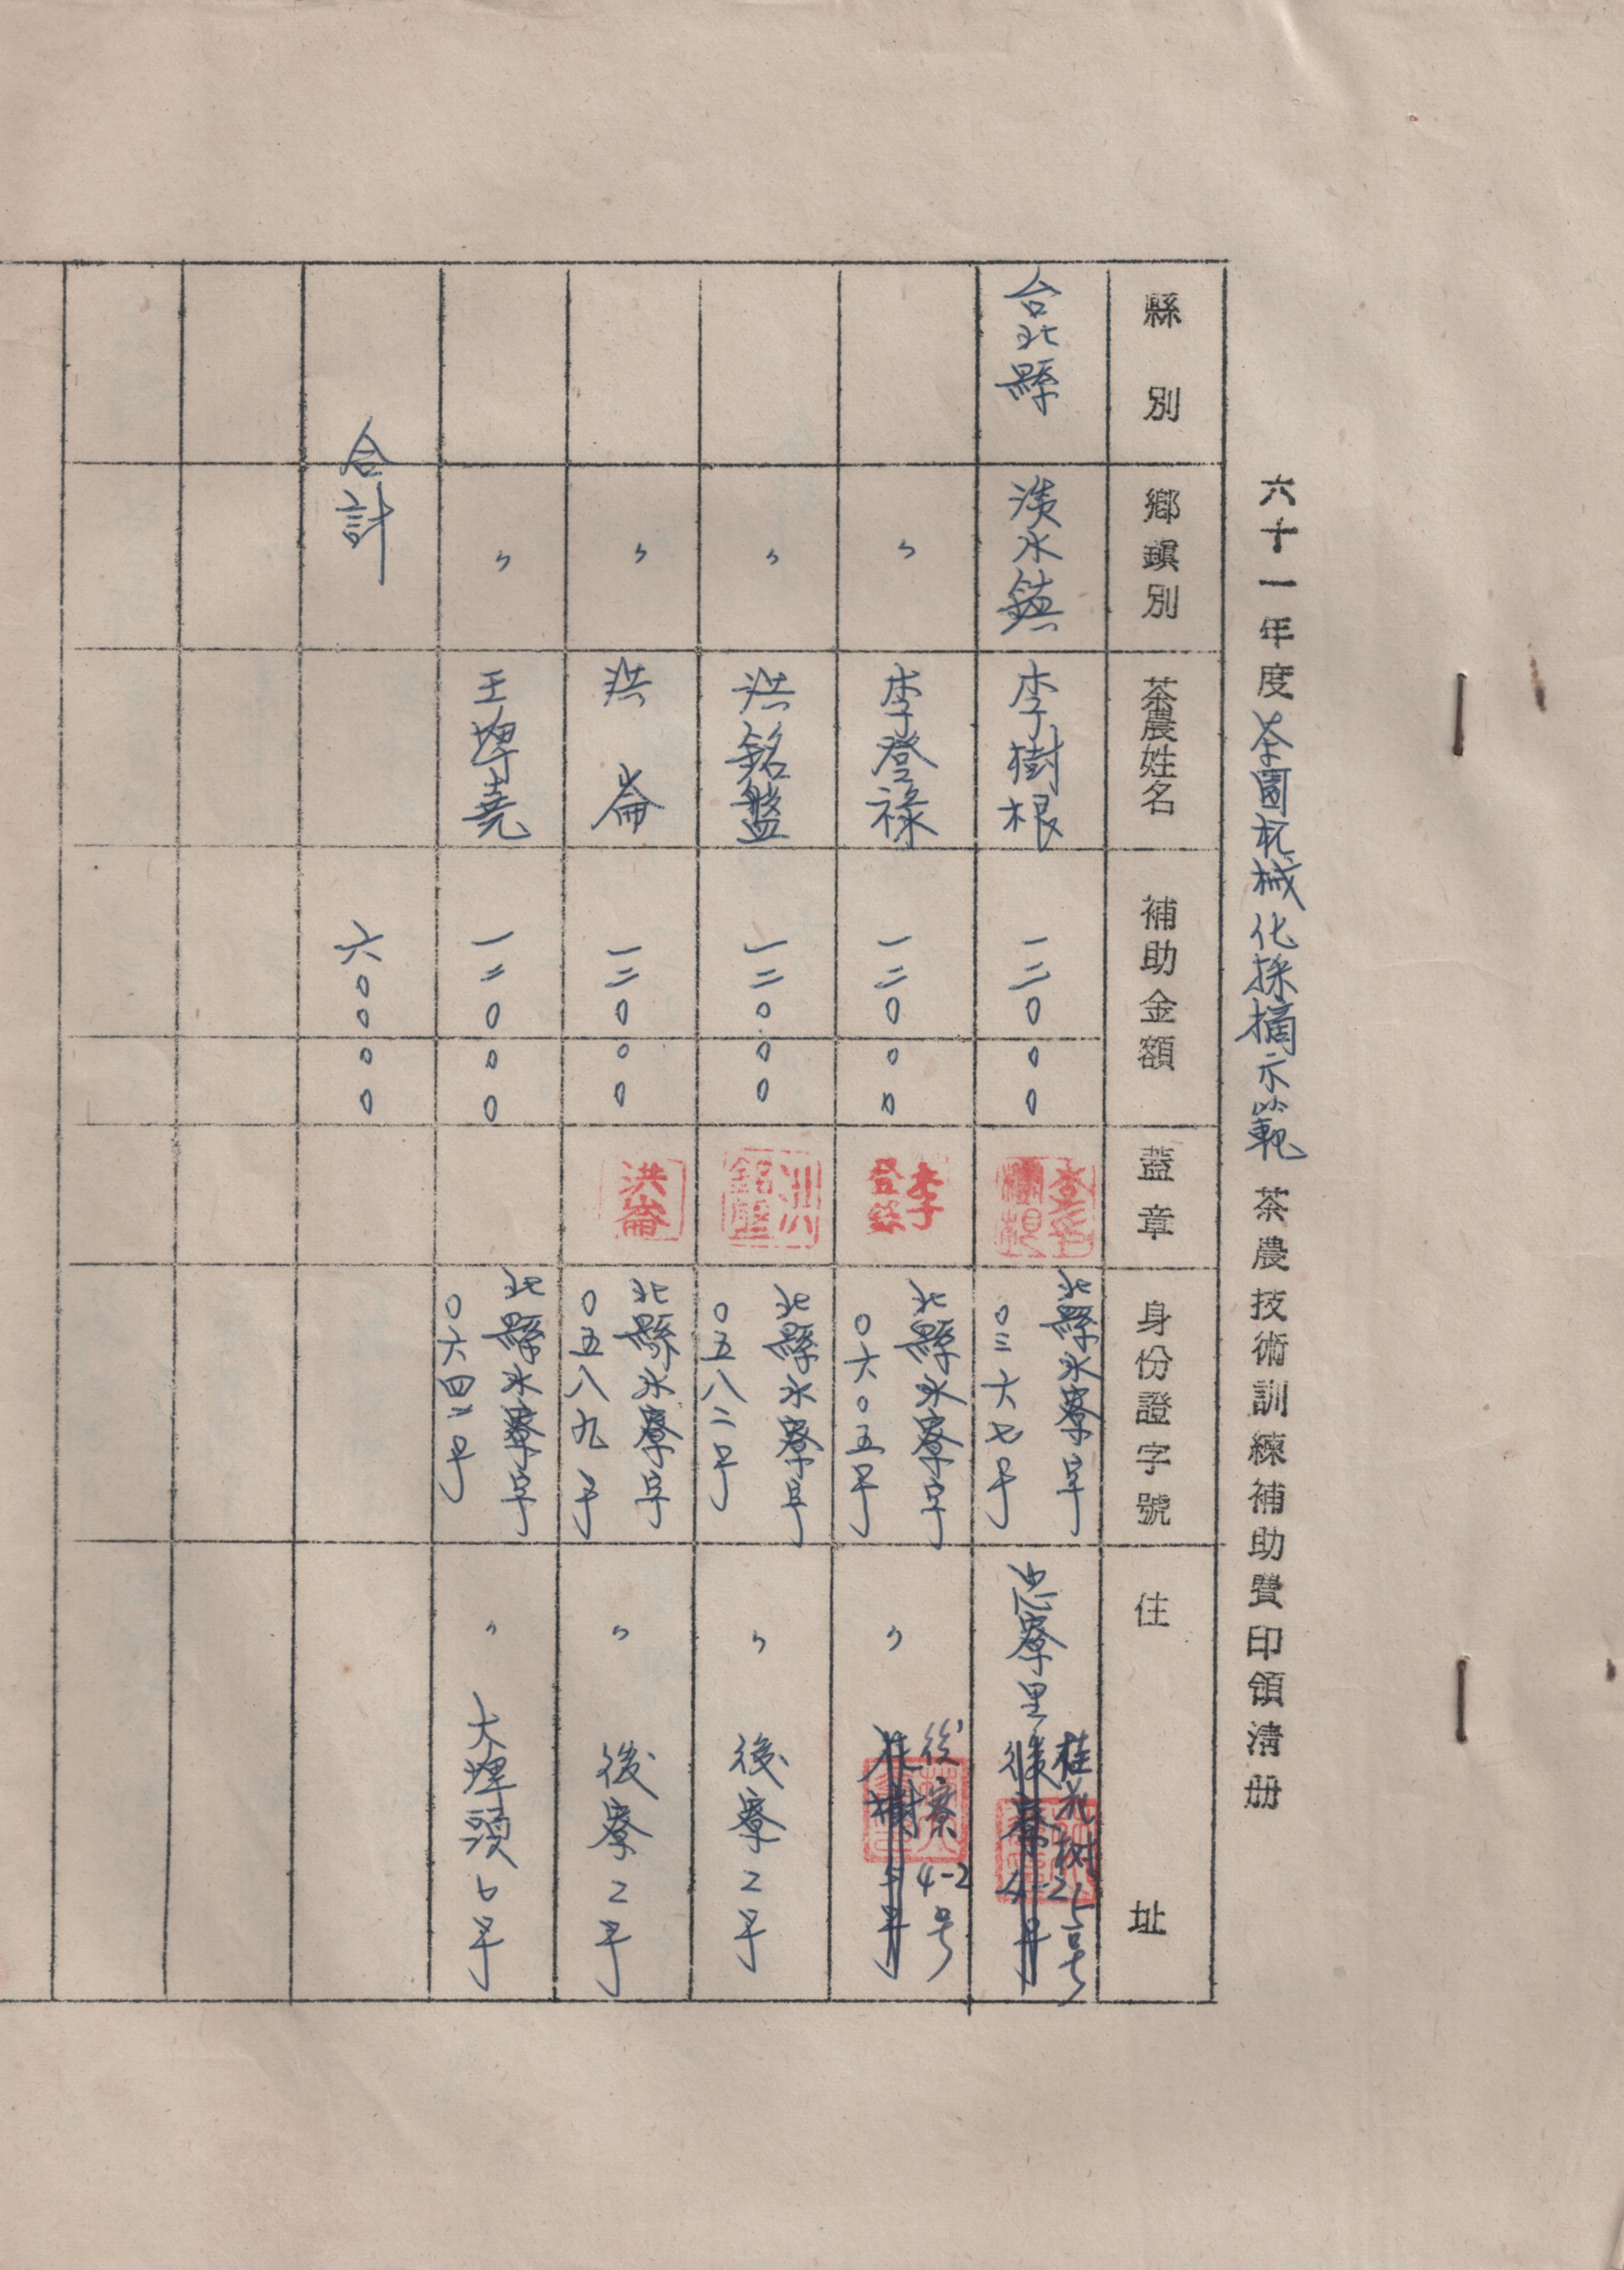 六十一年度茶園机械化採摘示範茶農技術訓練補助費印領清册
縣別 鄉鎮別 茶農姓名 補助金額 蓋章 身份證字號 住址
台北縣 淡水鎮 李樹根 一二〇〇〇 北縣水寮字〇三六七号 忠寮里 桂花树15号
〃 李登祿 一二〇〇〇 李登祿 北縣水寮字〇六〇五号 〃 後寮4-2号
〃 洪銘盤 一二〇〇〇 洪銘盤 北縣水寮字〇五八二号 〃 後寮2号
〃 洪崙 一二〇〇〇 洪崙 北縣水寮字〇五八九号 〃 後寮2号
〃 王埤堯 一二〇〇〇 北縣水寮字〇六四二号 〃 大埤頭6号
合計 六〇〇〇〇